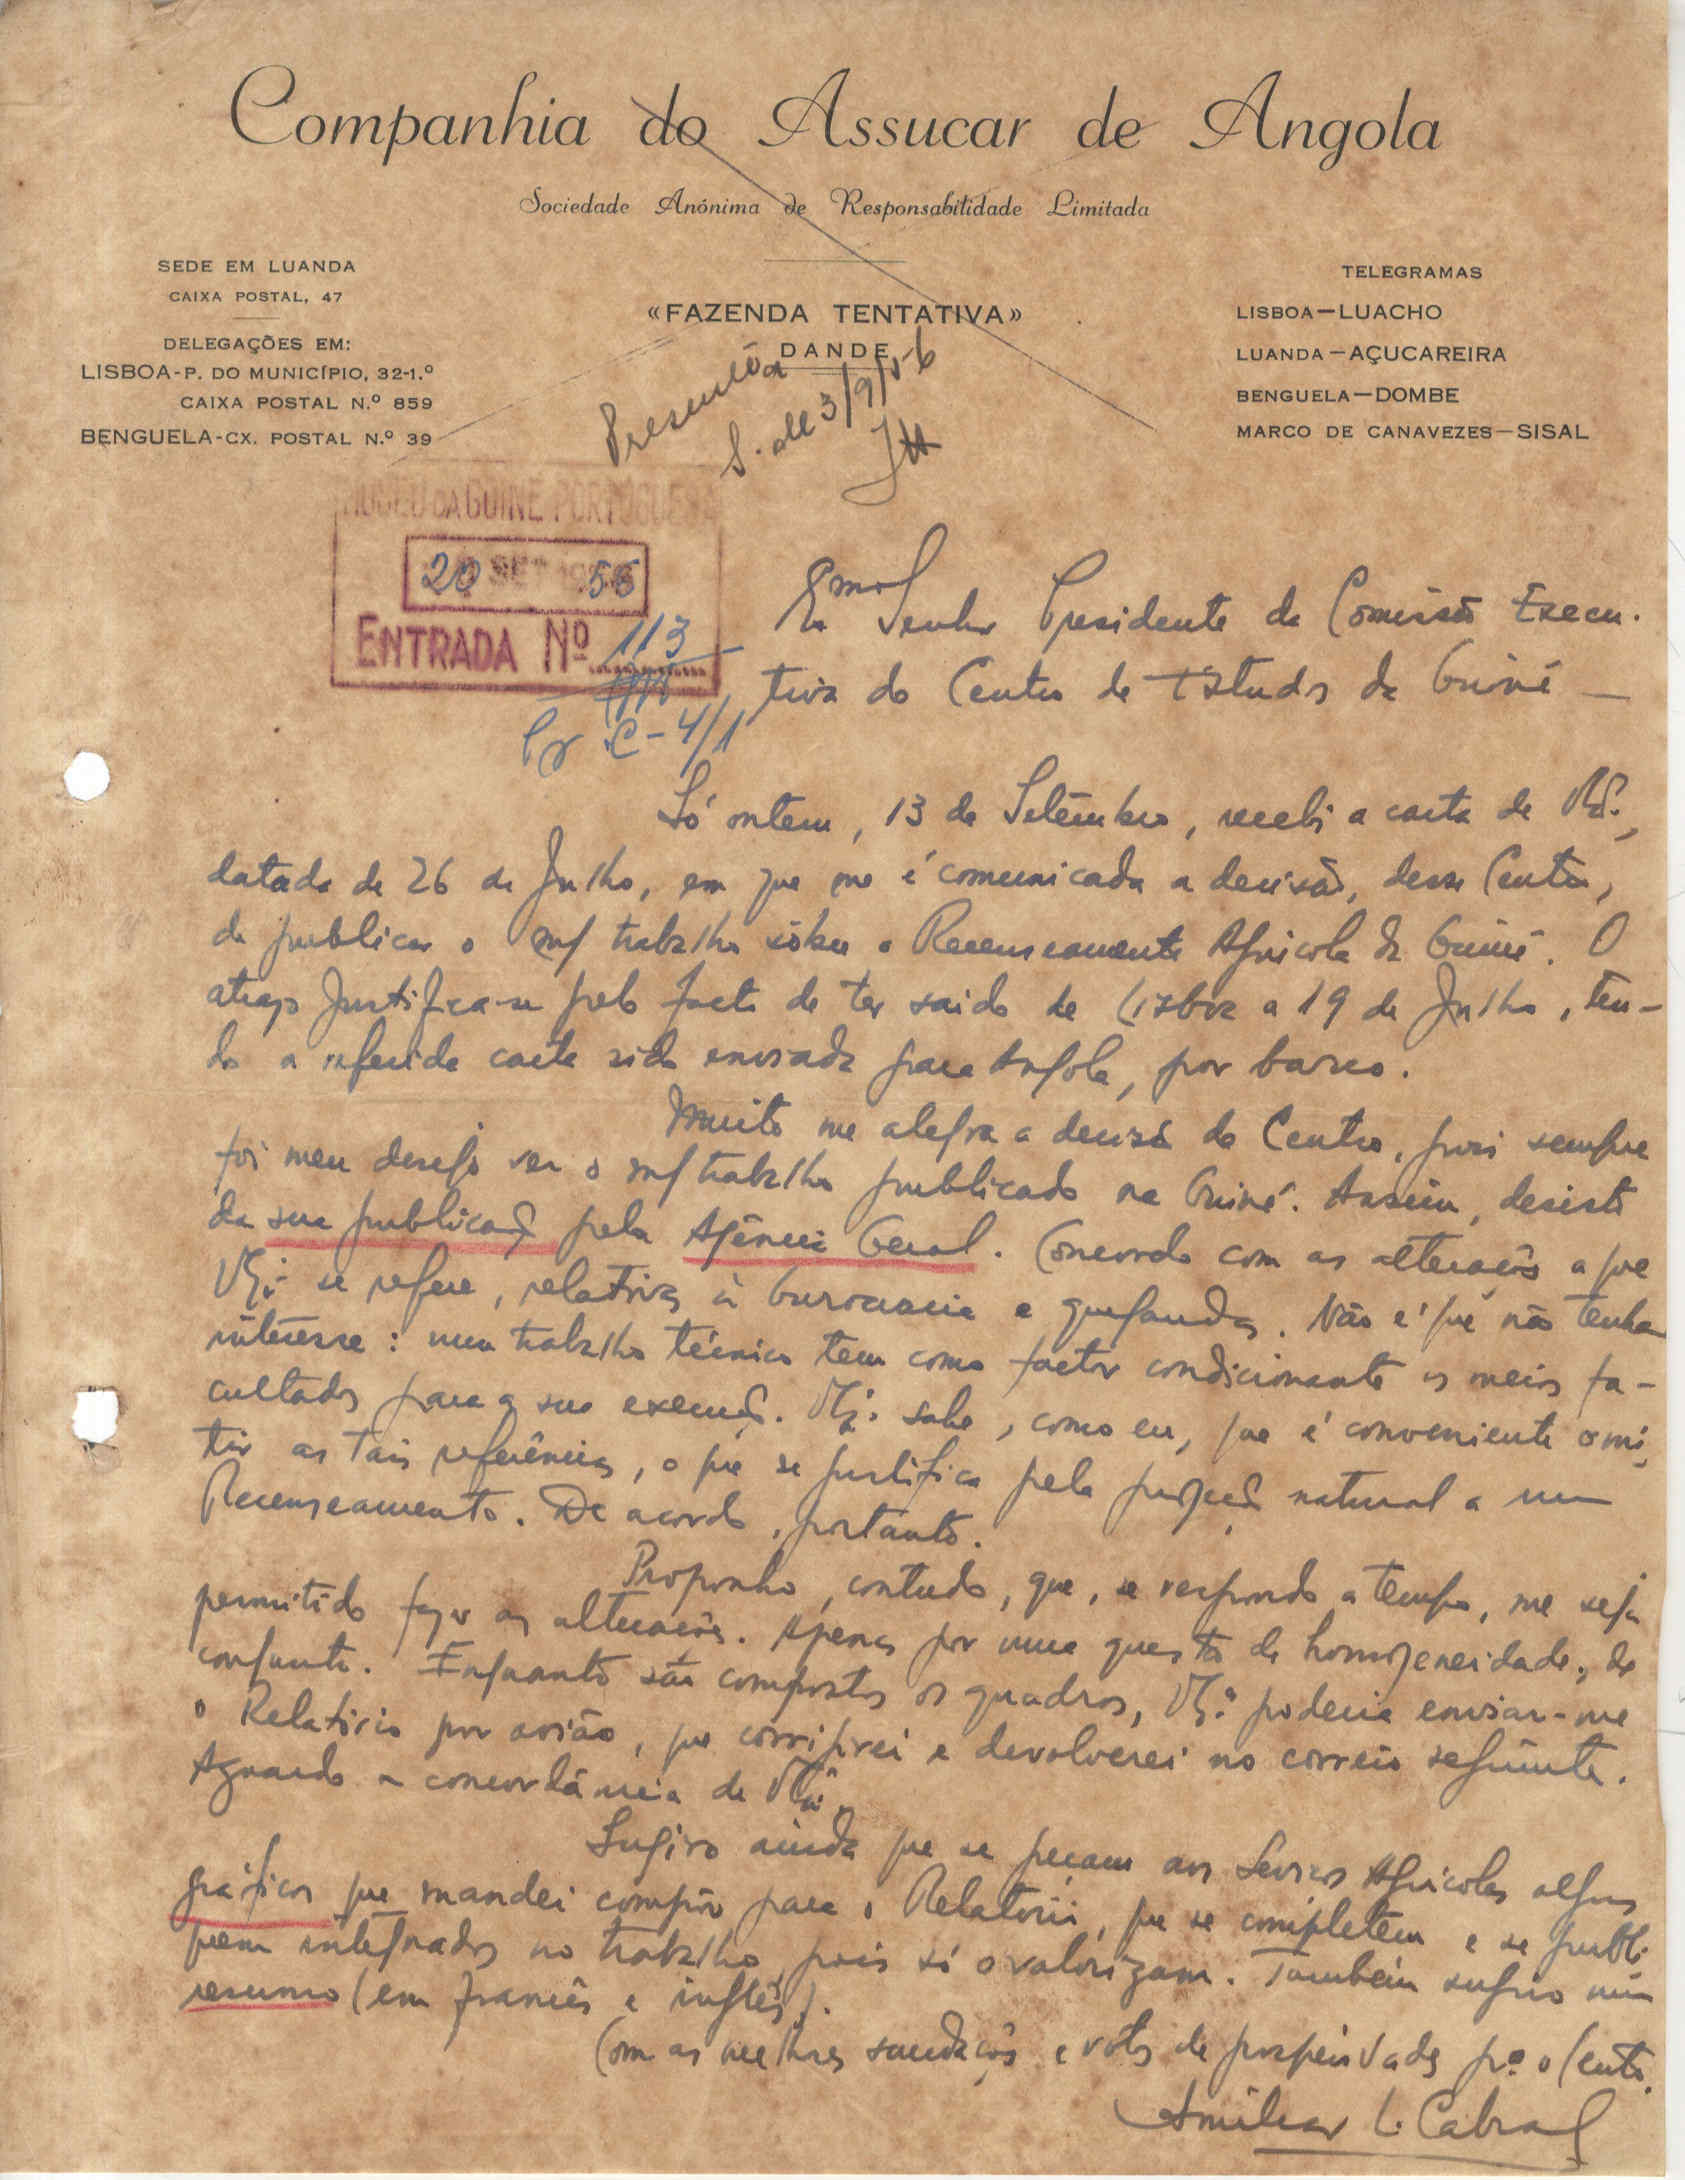 Companhia do Assucar de Angola
Sociedade Anónima de Responsabilidade Limitada
SEDE EM LUANDA
CAIXA POSTAL, 47
DELEGAÇÕES EM:
LISBOA-P. DO MUNICÍPIO, 32-1.º
CAIXA POSTAL N.º 859
BENGUELA-CX. POSTAL N.º 39
«FAZENDA TENTATIVA»
DANDE
TELEGRAMAS
LISBOA—LUACHO
LUANDA—AÇUCAREIRA
BENGUELA—DOMBE
MARCO DE CANAVEZES—SISAL
Presente à
S. de 3/9/56
MUSEU DA GUINÉ PORTUGUESA
20 SET 1956
ENTRADA Nº 113
C-4/1
Exmo. Senhor Presidente da Comissão Execu-
tiva do Centro de Estudos da Guiné —
Só ontem, 13 de Setembro, recebi a carta de V.Exª.,
datada de 26 de Julho, em que me é comunicada a decisão, desse Centro,
de publicar o m/ trabalho sôbre o Recenseamento Agrícola da Guiné. O
atraso justifica-se pelo facto de ter saido de Lisboa a 19 de Julho, ten-
do a referida carta sido enviada para Angola, por barco.
Muito me alegra a decisão do Centro, pois sempre
foi meu desejo ver o m/ trabalho publicado na Guiné. Assim, desisto
da sua publicação pela Agência Geral. Concordo com as alterações a que
V.Exª. se refere, relativas à burocracia e quejandas. Não é que não tenha
interêsse: num trabalho técnico tem como factor condicionante os meios fa-
cultados para a sua execução. V.Exª. sabe, como eu, que é conveniente omi-
tir as tais referências, o que se justifica pela projecção natural a um
Recenseamento. De acordo, portanto.
Proponho, contudo, que, se respondo a tempo, me seja
permitido fazer as alterações. Apenas por uma questão de homogeneidade, de
conjunto. Enquanto são compostos os quadros, V.Exª. poderia enviar-me
o Relatório por avião, que corrigirei e devolverei no correio seguinte.
Aguardo a concordância de V.Exª.
Sugiro ainda que se peçam aos Serviços Agrícolas alguns
gráficos que mandei compôr para o Relatório, que se completem e se publi-
quem integrados no trabalho, pois só o valorizam. Também sugiro um
resumo (em francês e inglês).
Com as melhores saudações e votos de prosperidades pª o Centro.
Amílcar L. Cabral